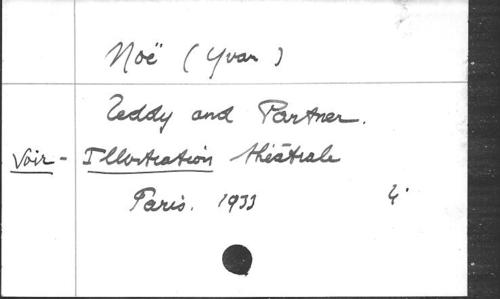 Noë (Yvan)
Teddy and Partner.
Voir - Illustration théâtrale
Paris. 1933